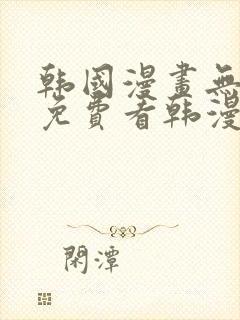 韩國漫畫無
免費看韩漫
閑潭